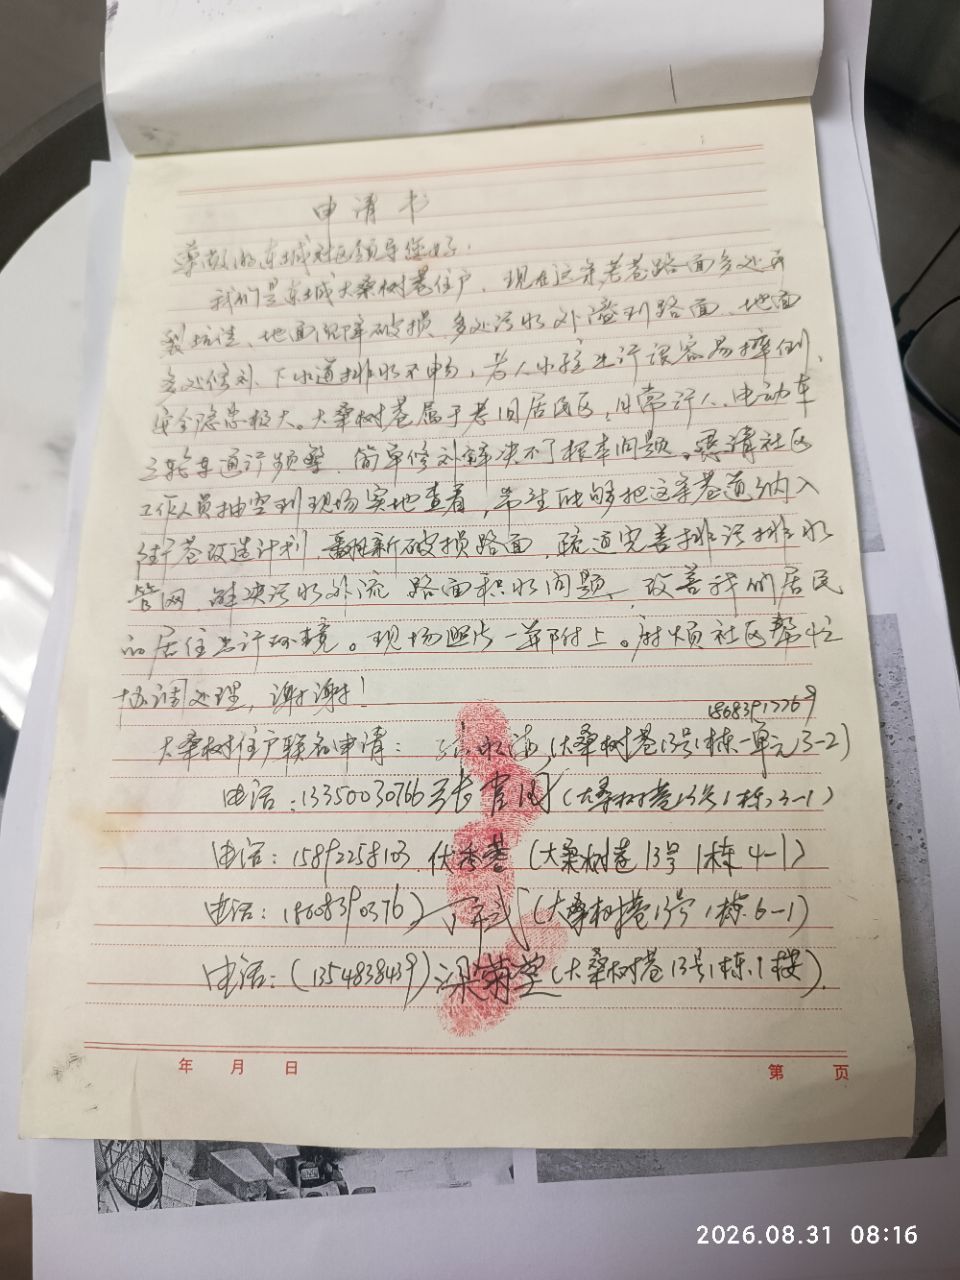 申请书
尊敬的东城社区领导您好：
我们是东城大桑树巷住户，现在这条老巷路面多处开
裂坑洼、地面沉降破损，多处污水外溢到路面，地面
多处修补，下水道排水不畅，老人小孩出行很容易摔倒，
安全隐患极大。大桑树巷属于老旧居民区，日常行人、电动车
三轮车通行频繁，简单修补解决不了根本问题。恳请社区
工作人员抽空到现场实地查看，希望能够把这条巷道纳入
背街巷改造计划 翻新破损路面，疏通完善排污排水
管网，解决污水外流 路面积水问题，改善我们居民
的居住出行环境。现场照片一并附上。麻烦社区帮忙
协调处理，谢谢！
18683917769
大桑树住户联名申请： (大桑树巷13号1栋一单元3-2)
电话：13350030766 张 (大桑树巷13号1栋，3-1)
电话：15892258103 伏秀蓉 (大桑树巷13号 1栋 4-1)
电话：(18608390376) 丁 武 (大桑树巷13号1栋.6-1)
电话：(1354838439) 梁菊堂 (大桑树巷13号1栋.1楼)
年 月 日
第 页
2026.08.31 08:16